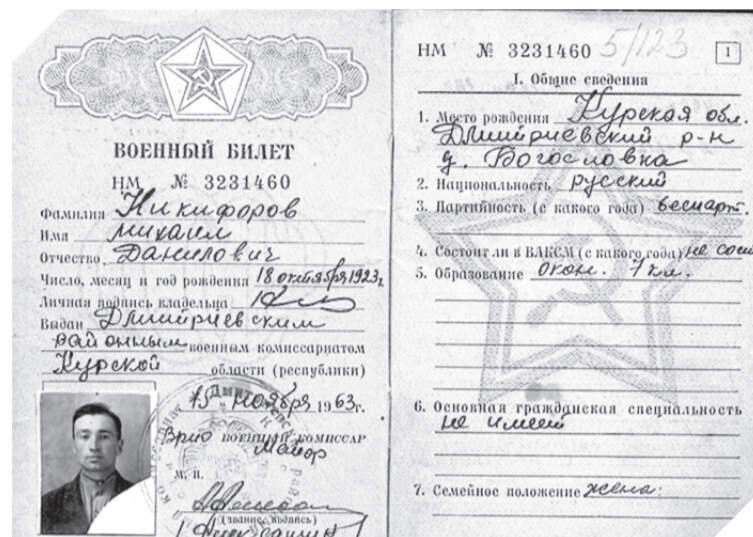 ВОЕННЫЙ БИЛЕТ
НМ № 3231460
Фамилия Никифоров
Имя Михаил
Отчество Данилович
Число, месяц и год рождения 18 октября 1923г.
Личная подпись владельца
Выдан Дмитриевским
районным военным комиссариатом
Курской области (республики)
"15" ноября 1963г.
Врио военный комиссар
Майор
М. П.
(звание, подпись)
НМ № 3231460 5/123 1
I. Общие сведения
1. Место рождения Курская обл.
Дмитриевский р-н
д. Богословка
2. Национальность русский
3. Партийность (с какого года) беспарт.
4. Состоит ли в ВЛКСМ (с какого года) не сост
5. Образование Окон. 7 кл.
6. Основная гражданская специальность
не имеет
7. Семейное положение жена.